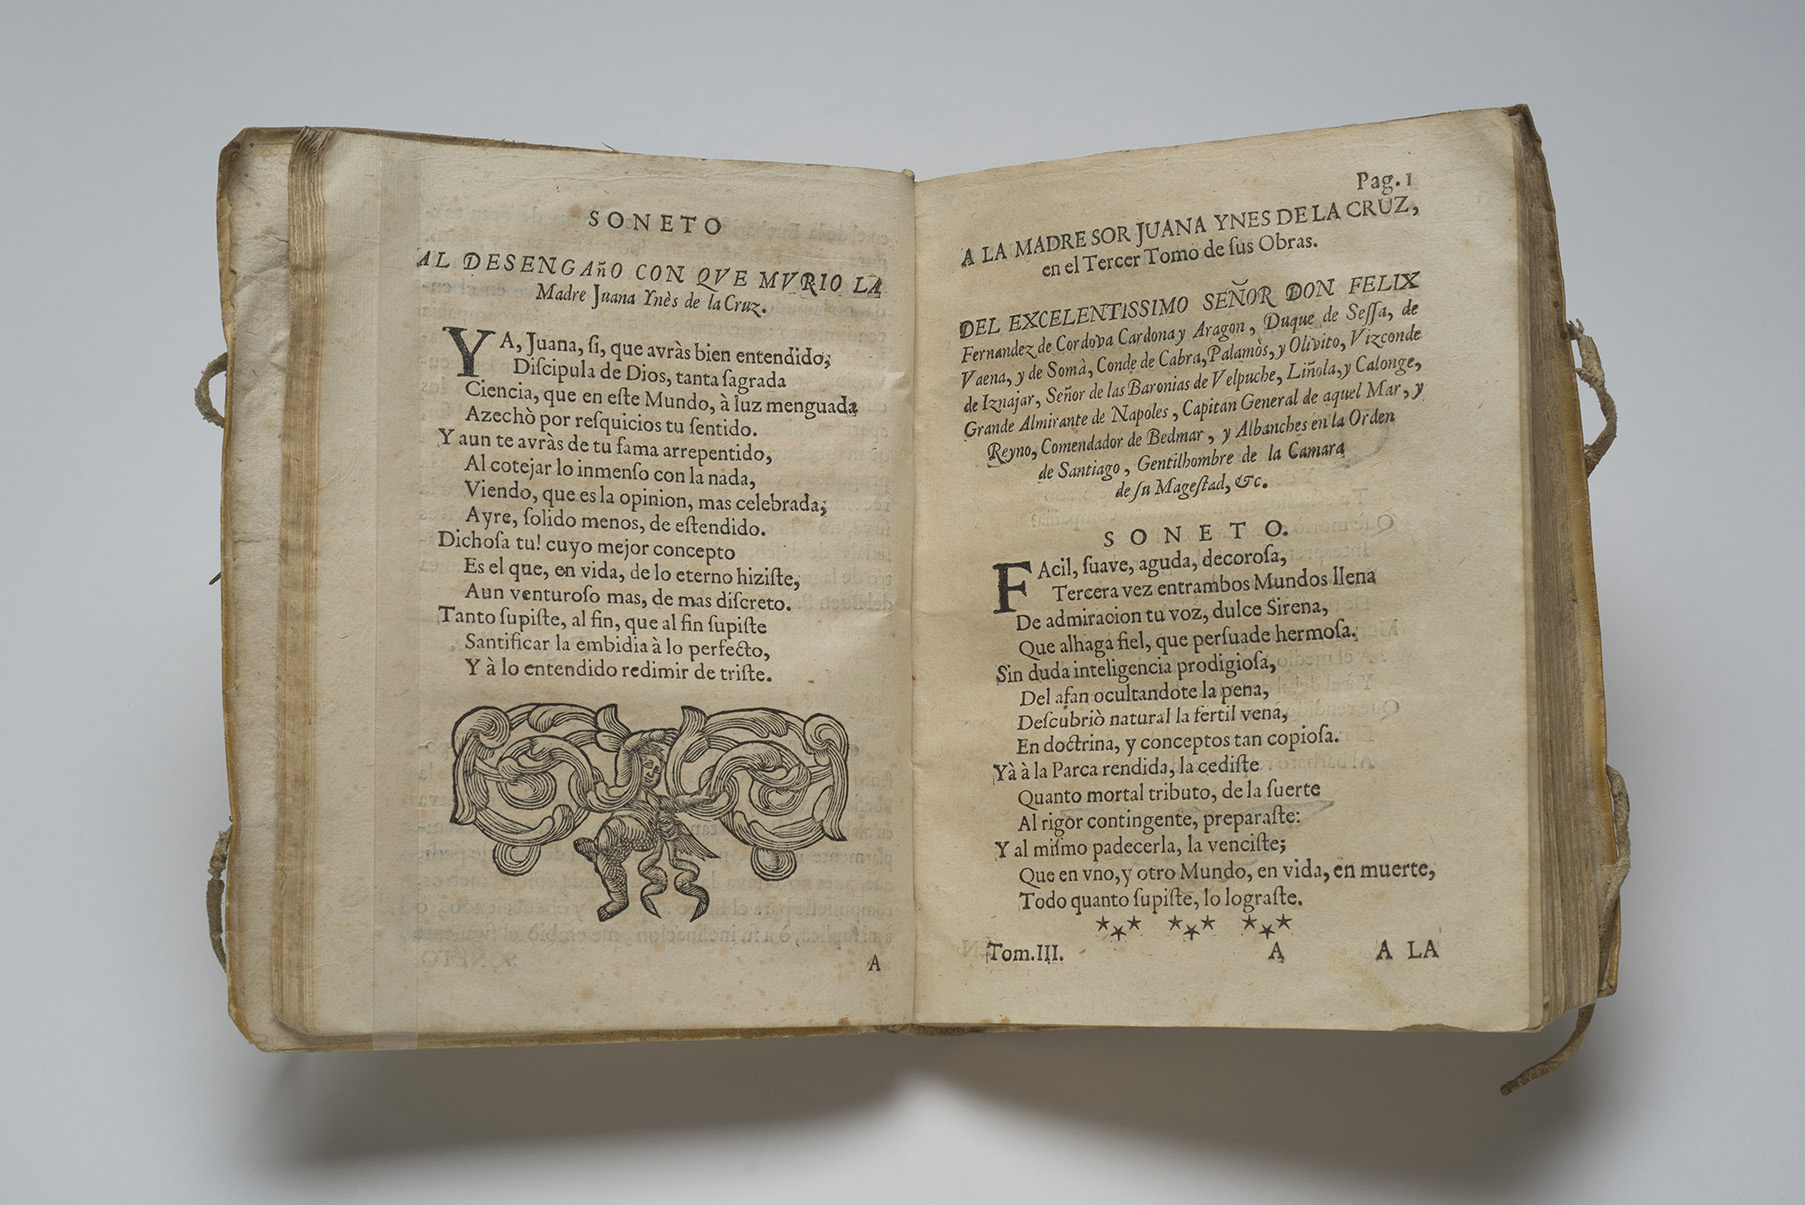 SONETO
AL DESENGAñO CON QVE MVRIO LA
Madre Juana Ynès de la Cruz.
YA, Juana, ſi, que avràs bien entendido,
Diſcipula de Dios, tanta ſagrada
Ciencia, que en eſte Mundo, à luz menguada
Azechò por reſquicios tu ſentido.
Y aun te avràs de tu fama arrepentido,
Al cotejar lo inmenſo con la nada,
Viendo, que es la opinion, mas celebrada,
Ayre, ſolido menos, de eſtendido.
Dichoſa tu! cuyo mejor concepto
Es el que, en vida, de lo eterno hiziſte,
Aun venturoſo mas, de mas diſcreto.
Tanto ſupiſte, al fin, que al fin ſupiſte
Santificar la embidia à lo perfecto,
Y à lo entendido redimir de triſte.
A
Pag. 1
A LA MADRE SOR JUANA YNES DE LA CRUZ,
en el Tercer Tomo de ſus Obras.
DEL EXCELENTISSIMO SEÑOR DON FELIX
Fernandez de Cordova Cardona y Aragon, Duque de Seſſa, de
Vaena, y de Somà, Conde de Cabra, Palamòs, y Olivito, Vizconde
de Iznajar, Señor de las Baronias de Velpuche, Liñola, y Calonge,
Grande Almirante de Napoles, Capitan General de aquel Mar, y
Reyno, Comendador de Bedmar, y Albanches en la Orden
de Santiago, Gentilhombre de la Camara
de ſu Mageſtad, &c.
SONETO.
FAcil, ſuave, aguda, decoroſa,
Tercera vez entrambos Mundos llena
De admiracion tu voz, dulce Sirena,
Que alhaga fiel, que perſuade hermoſa.
Sin duda inteligencia prodigioſa,
Del afan ocultandote la pena,
Deſcubriò natural la fertil vena,
En doctrina, y conceptos tan copioſa.
Yà à la Parca rendida, la cediſte
Quanto mortal tributo, de la ſuerte
Al rigor contingente, preparaſte:
Y al miſmo padecerla, la venciſte;
Que en vno, y otro Mundo, en vida, en muerte,
Todo quanto ſupiſte, lo lograſte.
Tom. III. A A LA